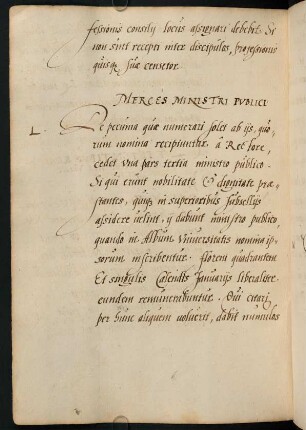 fessionis consilij locus assignari debebit. Si
non sint recepti inter discipulos, professionis
quisq; suæ censetor.
MERCES MINISTRI PVBLICI
L. De pecunia quæ numerari solet ab ijs, quo,
rum nomina recipiuntur à Rectore,
cedet vna pars tertia ministro publico.
Si qui erunt nobilitate & dignitate præ,
stantes, quiq; in superioribus subsellijs
assidere uelint, ij dabunt ministro publico
quando in Album Vniuersitatis nomina ip,
sorum inscribentur floreni quadrantem
Et singulis Calendis Januarijs liberaliter
eundem remunerabuntur. Qui citari
per hunc aliquem voluerit, dabit nummos